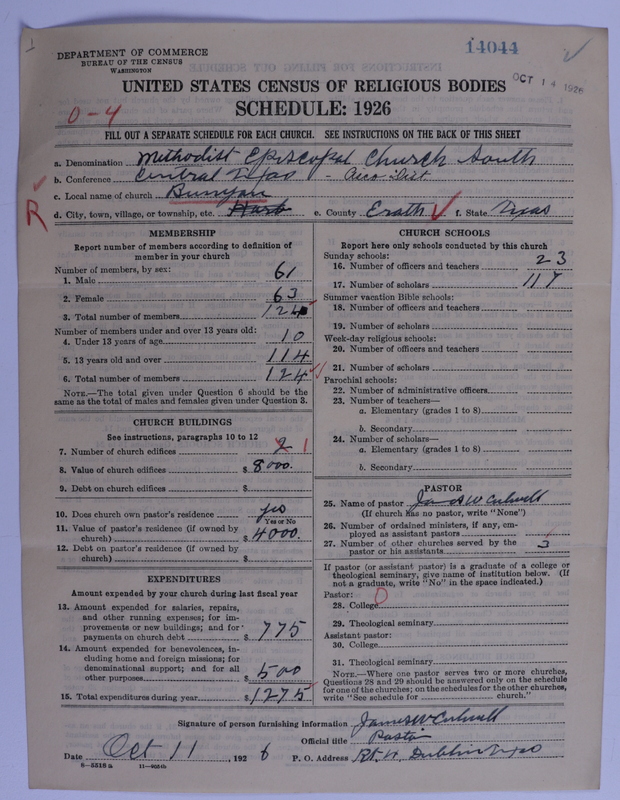 14044
DEPARTMENT OF COMMERCE
BUREAU OF THE CENSUS
WASHINGTON
OCT 14 1926
UNITED STATES CENSUS OF RELIGIOUS BODIES
SCHEDULE: 1926
0-4
FILL OUT A SEPARATE SCHEDULE FOR EACH CHURCH. SEE INSTRUCTIONS ON THE BACK OF THIS SHEET
a. Denomination Methodist Episcopal Church South
b. Conference Central Texas - Cisco Dist
c. Local name of church Bunyan
R
d. City, town, village, or township, etc. e. County Erath f. State Texas
MEMBERSHIP
Report number of members according to definition of
member in your church
Number of members, by sex:
1. Male 61
2. Female 63
3. Total number of members 124
Number of members under and over 13 years old:
4. Under 13 years of age 10
5. 13 years old and over 114
6. Total number of members 124
NOTE.—The total given under Question 6 should be
same as the total of males and females given under Question 3.
CHURCH BUILDINGS
See instructions, paragraphs 10 to 12
7. Number of church edifices 2 1
8. Value of church edifices $ 8000.
9. Debt on church edifices $
10. Does church own pastor's residence yes
Yes or No
11. Value of pastor's residence (if owned by
church) $ 4000.
12. Debt on pastor's residence (if owned by
church) $
EXPENDITURES
Amount expended by your church during last fiscal year
13. Amount expended for salaries, repairs,
and other running expenses; for im-
provements or new buildings; and for
payments on church debt $ 775
14. Amount expended for benevolences, in-
cluding home and foreign missions; for
denominational support; and for all
other purposes $ 500
15. Total expenditures during year $ 1275
CHURCH SCHOOLS
Report here only schools conducted by this church
Sunday schools:
16. Number of officers and teachers 23
17. Number of scholars 117
Summer vacation Bible schools:
18. Number of officers and teachers
19. Number of scholars
Week-day religious schools:
20. Number of officers and teachers
21. Number of scholars
Parochial schools:
22. Number of administrative officers
23. Number of teachers—
a. Elementary (grades 1 to 8)
b. Secondary
24. Number of scholars—
a. Elementary (grades 1 to 8)
b. Secondary
PASTOR
25. Name of pastor James W Culwell
(If church has no pastor, write "None")
26. Number of ordained ministers, if any, em-
ployed as assistant pastors
27. Number of other churches served by the
pastor or his assistants 3
If pastor (or assistant pastor) is a graduate of a college or
theological seminary, give name of institution below. (If
not a graduate, write "No" in the space indicated.)
Pastor:
28. College 0
29. Theological seminary
Assistant pastor:
30. College
31. Theological seminary
NOTE.—Where one pastor serves two or more churches,
Questions 28 and 29 should be answered only on the schedule
for one of the churches; on the schedules for the other churches,
write "See schedule for church."
Signature of person furnishing information James W Culwell
Official title Pastor
Date Oct 11, 1926 P. O. Address Rt. 4. Dublin Texas
8-5318 a 11-9654b